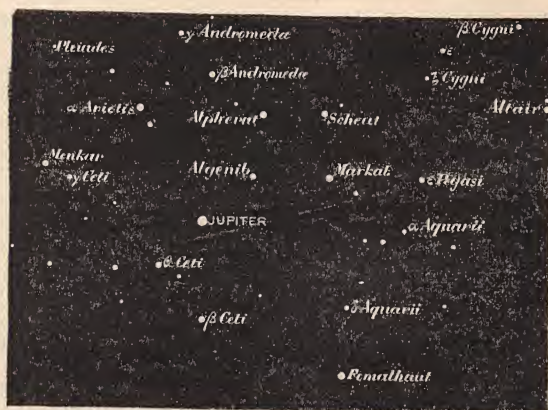 β Cygni
γ Andromeda
Pleiades
ε
β Andromeda
ζ Cygni
α Arietis
Alpherat
Scheat
Altair
Menkar
γ Ceti
Algenib
Markab
ε Pegasi
JUPITER
α Aquarii
θ Ceti
β Ceti
δ Aquarii
Fomalhaut